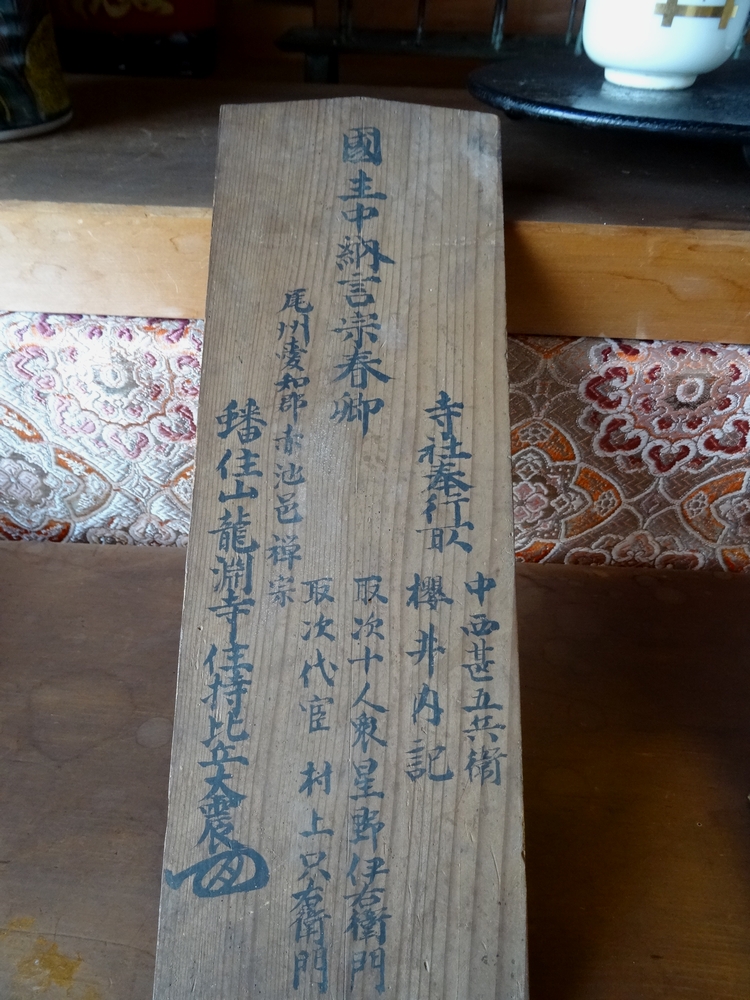 國主中納言宗春卿
寺社奉行所
中西甚五兵衛
櫻井内記
取次十人衆星野伊右衛門
取次代官 村上只右衛門
尾州愛知郡赤池邑禅宗
蟠住山龍渕寺住持比丘大震